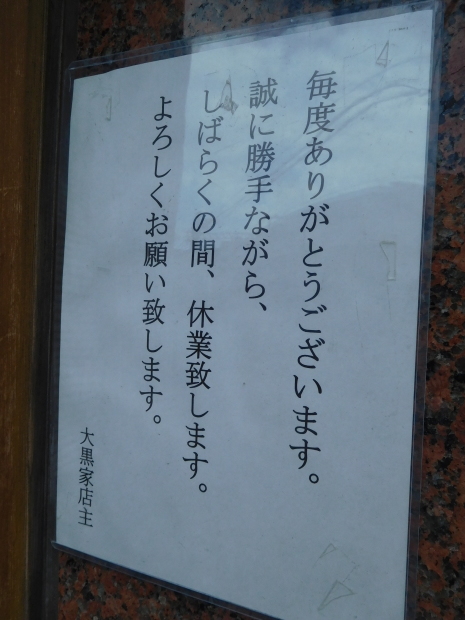 毎度ありがとうございます。
誠に勝手ながら、
しばらくの間、休業致します。
よろしくお願い致します。
大黒家店主